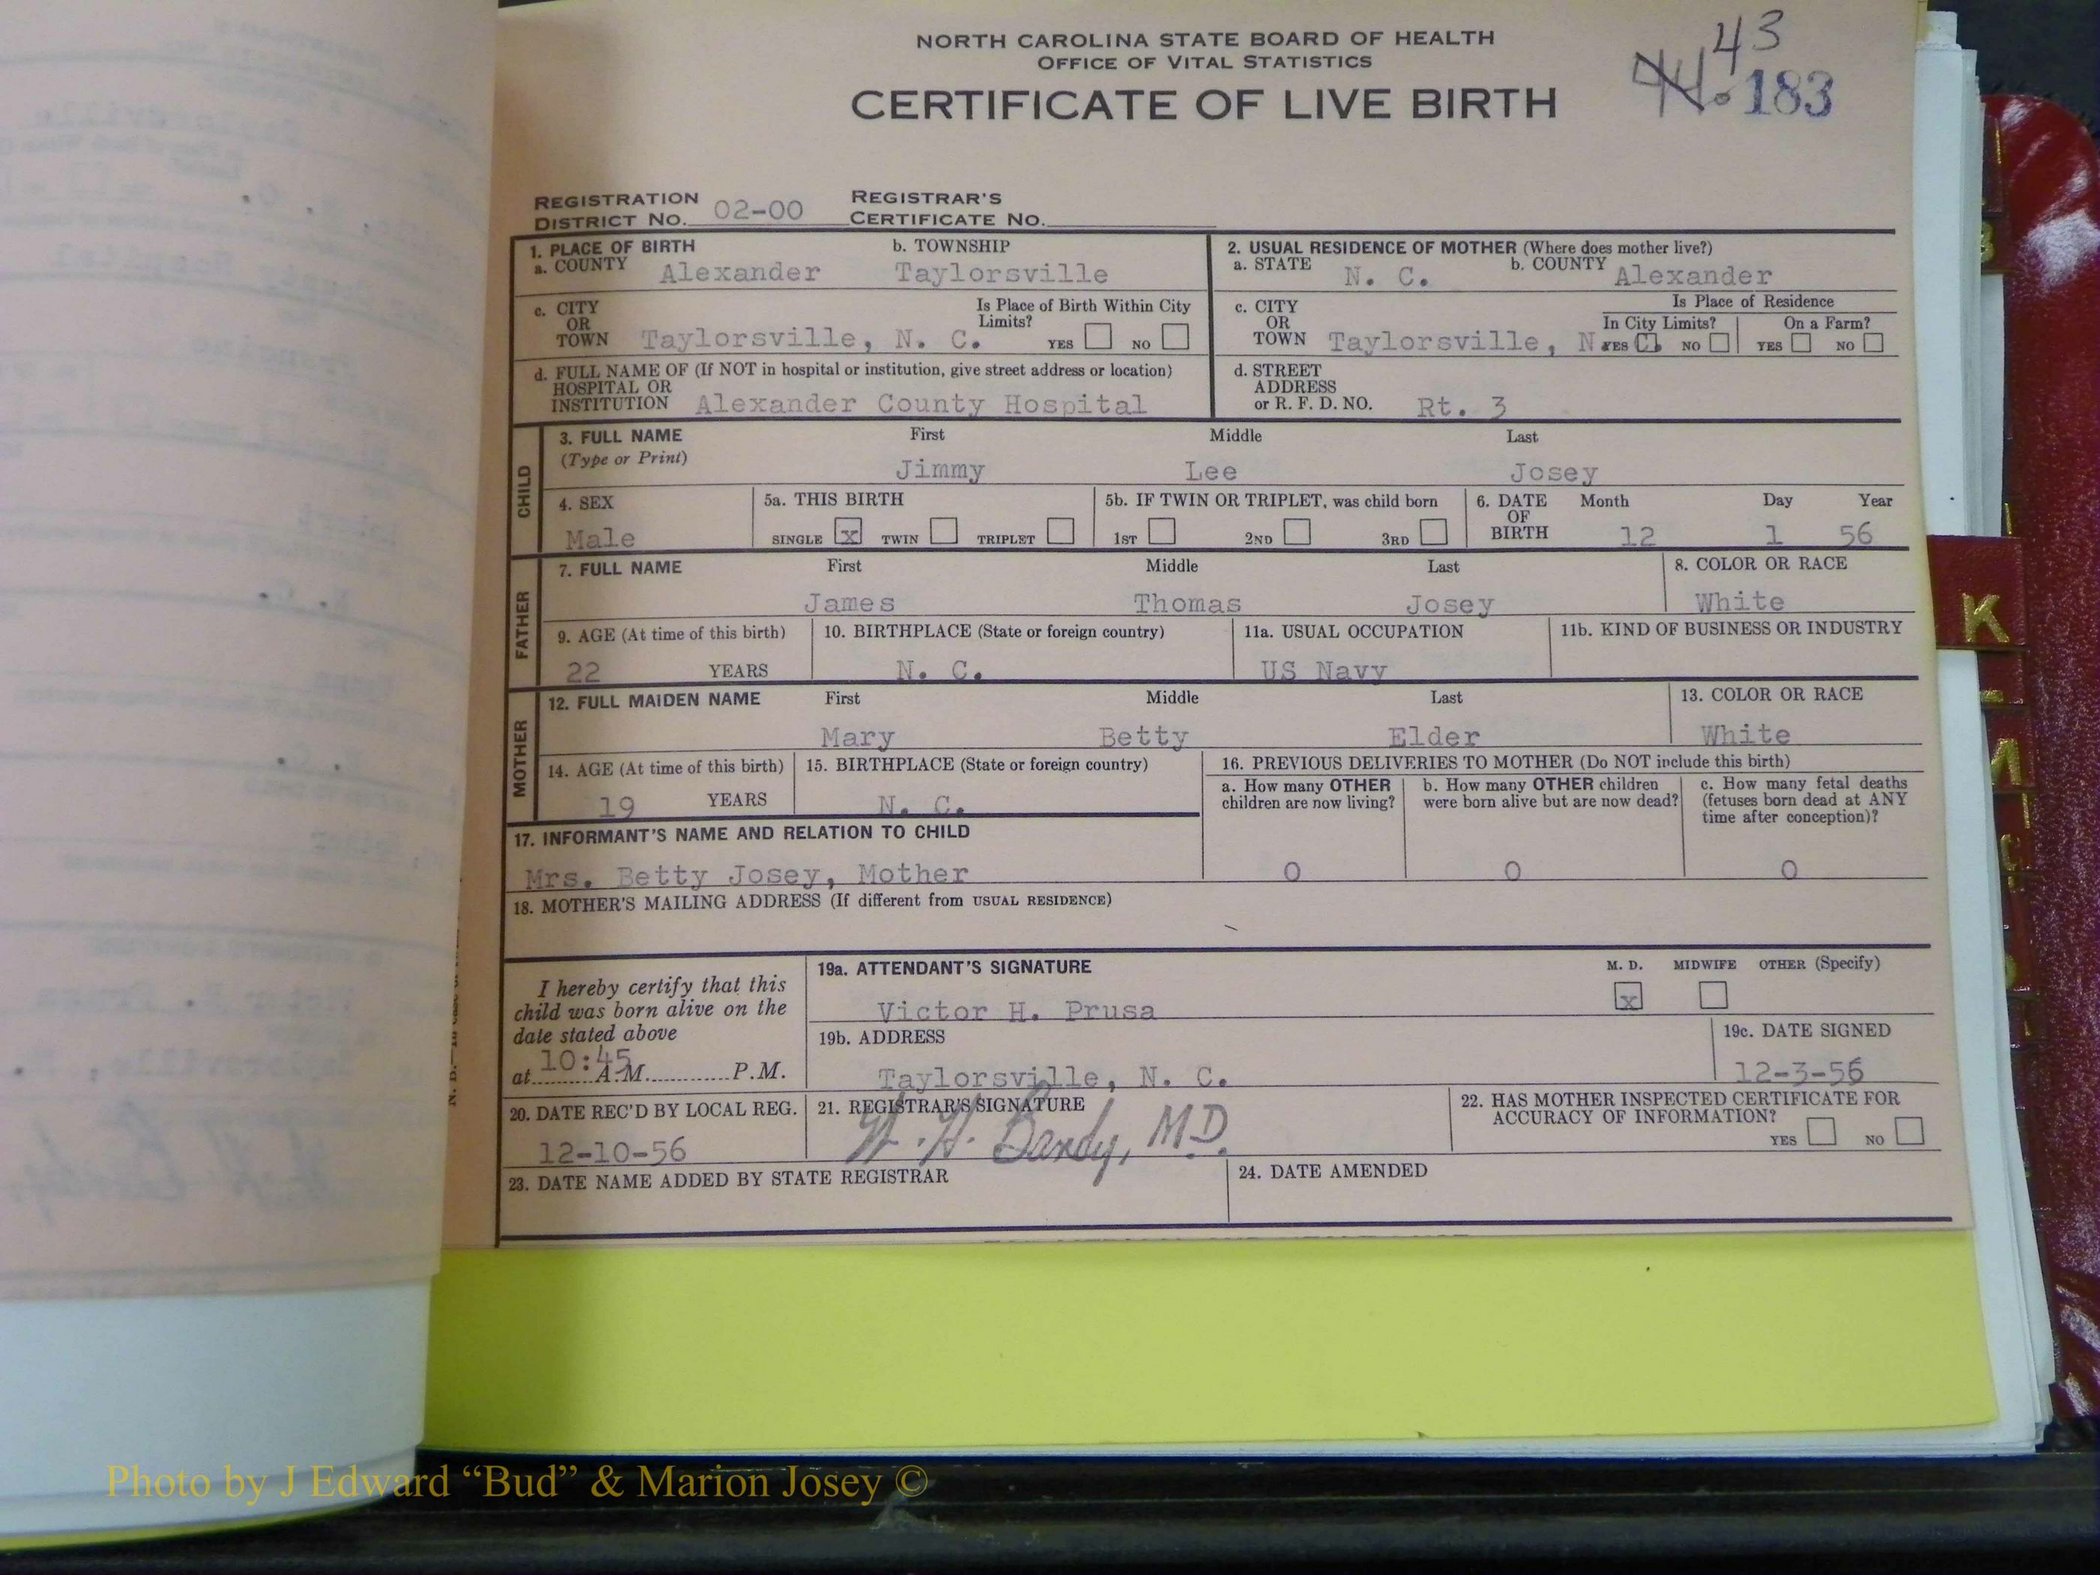 NORTH CAROLINA STATE BOARD OF HEALTH
OFFICE OF VITAL STATISTICS
CERTIFICATE OF LIVE BIRTH
43
No. 183
REGISTRATION DISTRICT No. 02-00
REGISTRAR'S CERTIFICATE No.
1. PLACE OF BIRTH
a. COUNTY Alexander
b. TOWNSHIP Taylorsville
2. USUAL RESIDENCE OF MOTHER (Where does mother live?)
a. STATE N. C.
b. COUNTY Alexander
c. CITY OR TOWN Taylorsville, N. C.
Is Place of Birth Within City Limits? YES NO
c. CITY OR TOWN Taylorsville, N. C.
Is Place of Residence
In City Limits? YES NO
On a Farm? YES NO
d. FULL NAME OF (If NOT in hospital or institution, give street address or location)
HOSPITAL OR
INSTITUTION Alexander County Hospital
d. STREET ADDRESS or R. F. D. NO. Rt. 3
CHILD
3. FULL NAME First Middle Last
(Type or Print)
Jimmy Lee Josey
4. SEX
Male
5a. THIS BIRTH
SINGLE x TWIN TRIPLET
5b. IF TWIN OR TRIPLET, was child born
1ST 2ND 3RD
6. DATE OF BIRTH Month Day Year
12 1 56
FATHER
7. FULL NAME First Middle Last
James Thomas Josey
8. COLOR OR RACE
White
9. AGE (At time of this birth)
22 YEARS
10. BIRTHPLACE (State or foreign country)
N. C.
11a. USUAL OCCUPATION
US Navy
11b. KIND OF BUSINESS OR INDUSTRY
MOTHER
12. FULL MAIDEN NAME First Middle Last
Mary Betty Elder
13. COLOR OR RACE
White
14. AGE (At time of this birth)
19 YEARS
15. BIRTHPLACE (State or foreign country)
N. C.
16. PREVIOUS DELIVERIES TO MOTHER (Do NOT include this birth)
a. How many OTHER
children are now living?
0
b. How many OTHER children
were born alive but are now dead?
0
c. How many fetal deaths
(fetuses born dead at ANY
time after conception)?
0
17. INFORMANT'S NAME AND RELATION TO CHILD
Mrs. Betty Josey, Mother
18. MOTHER'S MAILING ADDRESS (If different from USUAL RESIDENCE)
I hereby certify that this
child was born alive on the
date stated above
at 10:45 A.M. P.M.
19a. ATTENDANT'S SIGNATURE
Victor H. Prusa
M. D. MIDWIFE OTHER (Specify)
x
19b. ADDRESS
Taylorsville, N. C.
19c. DATE SIGNED
12-3-56
20. DATE REC'D BY LOCAL REG.
12-10-56
21. REGISTRAR'S SIGNATURE
W. H. Bandy, M.D.
22. HAS MOTHER INSPECTED CERTIFICATE FOR
ACCURACY OF INFORMATION?
YES NO
23. DATE NAME ADDED BY STATE REGISTRAR
24. DATE AMENDED
K
Photo by J Edward “Bud” & Marion Josey ©